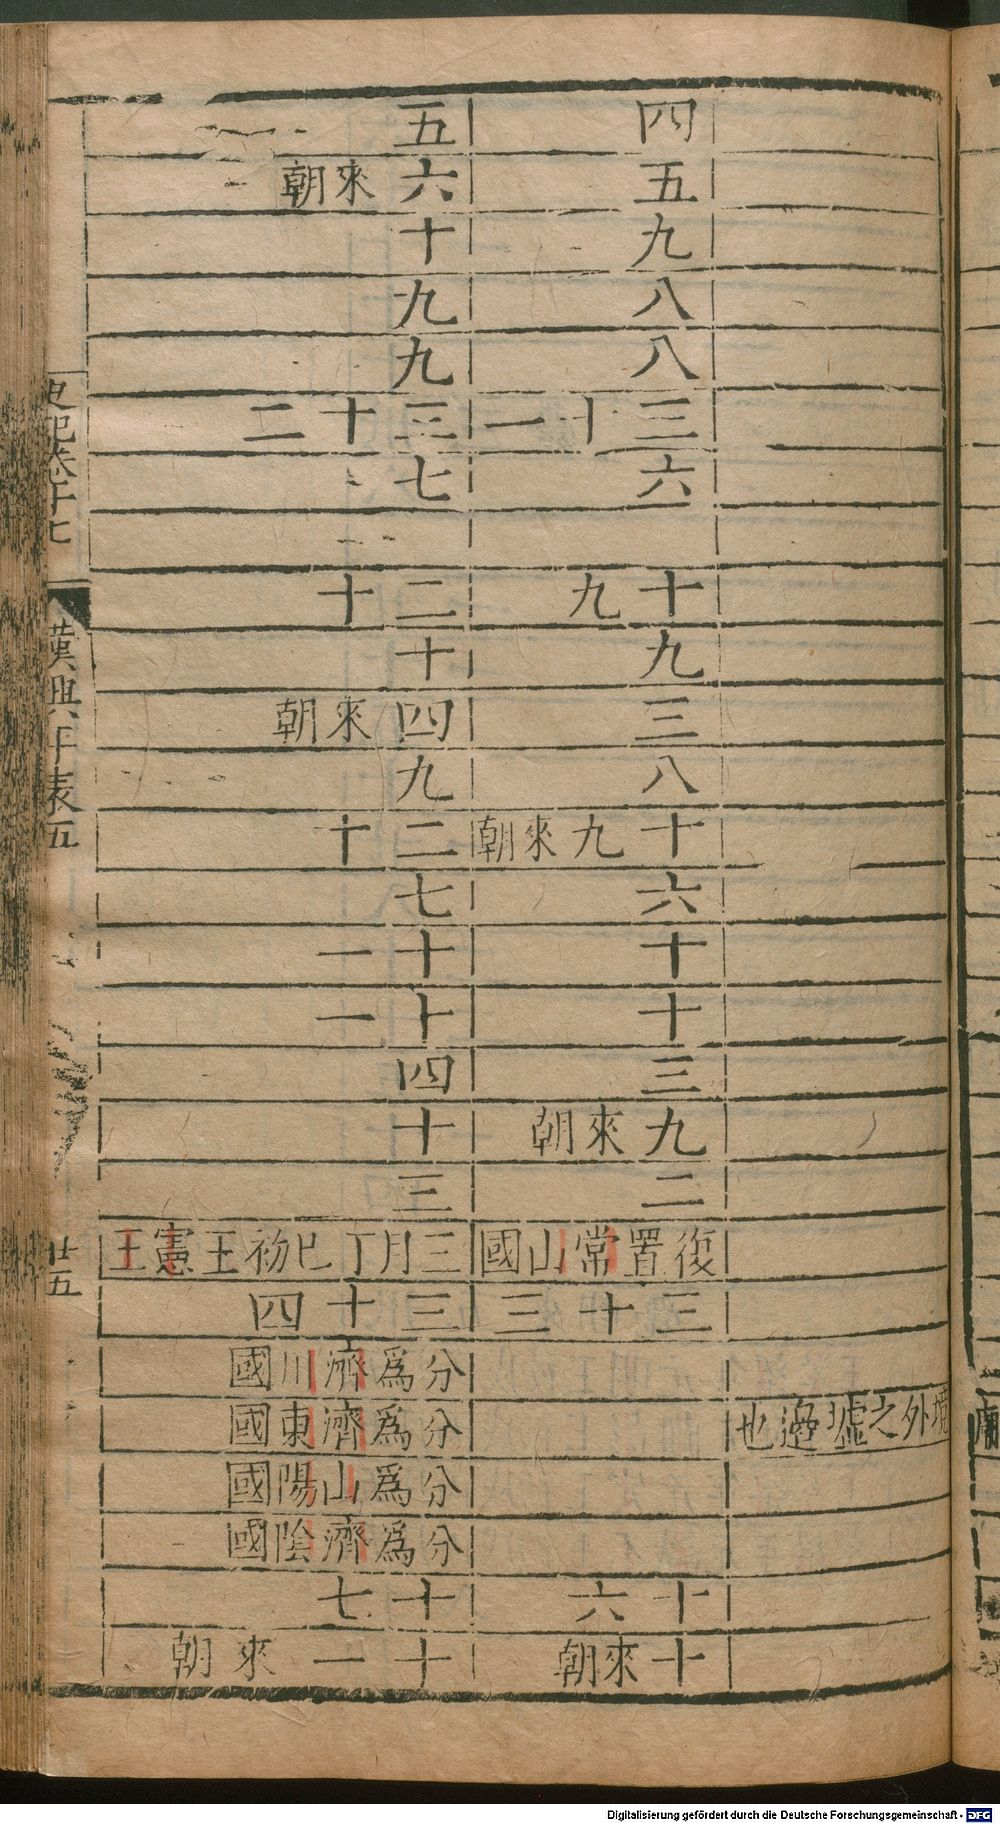 境外之墟邊也
四
五
九
八
八
三十一
六
十九
九
三
八
十九來朝
六
十
十
三
九來朝
二
復置常山國
三十三
十六
十來朝
五
六來朝
十
九
九
三十二
七
二十
十
四來朝
九
二十
七
十一
十一
四
十
三
三月丁巳初王憲王
三十四
分爲濟川國
分爲濟東國
分爲山陽國
分爲濟陰國
十七
十一來朝
史記卷十七
漢興年表五
廿五
Digitalisierung gefördert durch die Deutsche Forschungsgemeinschaft - DFG